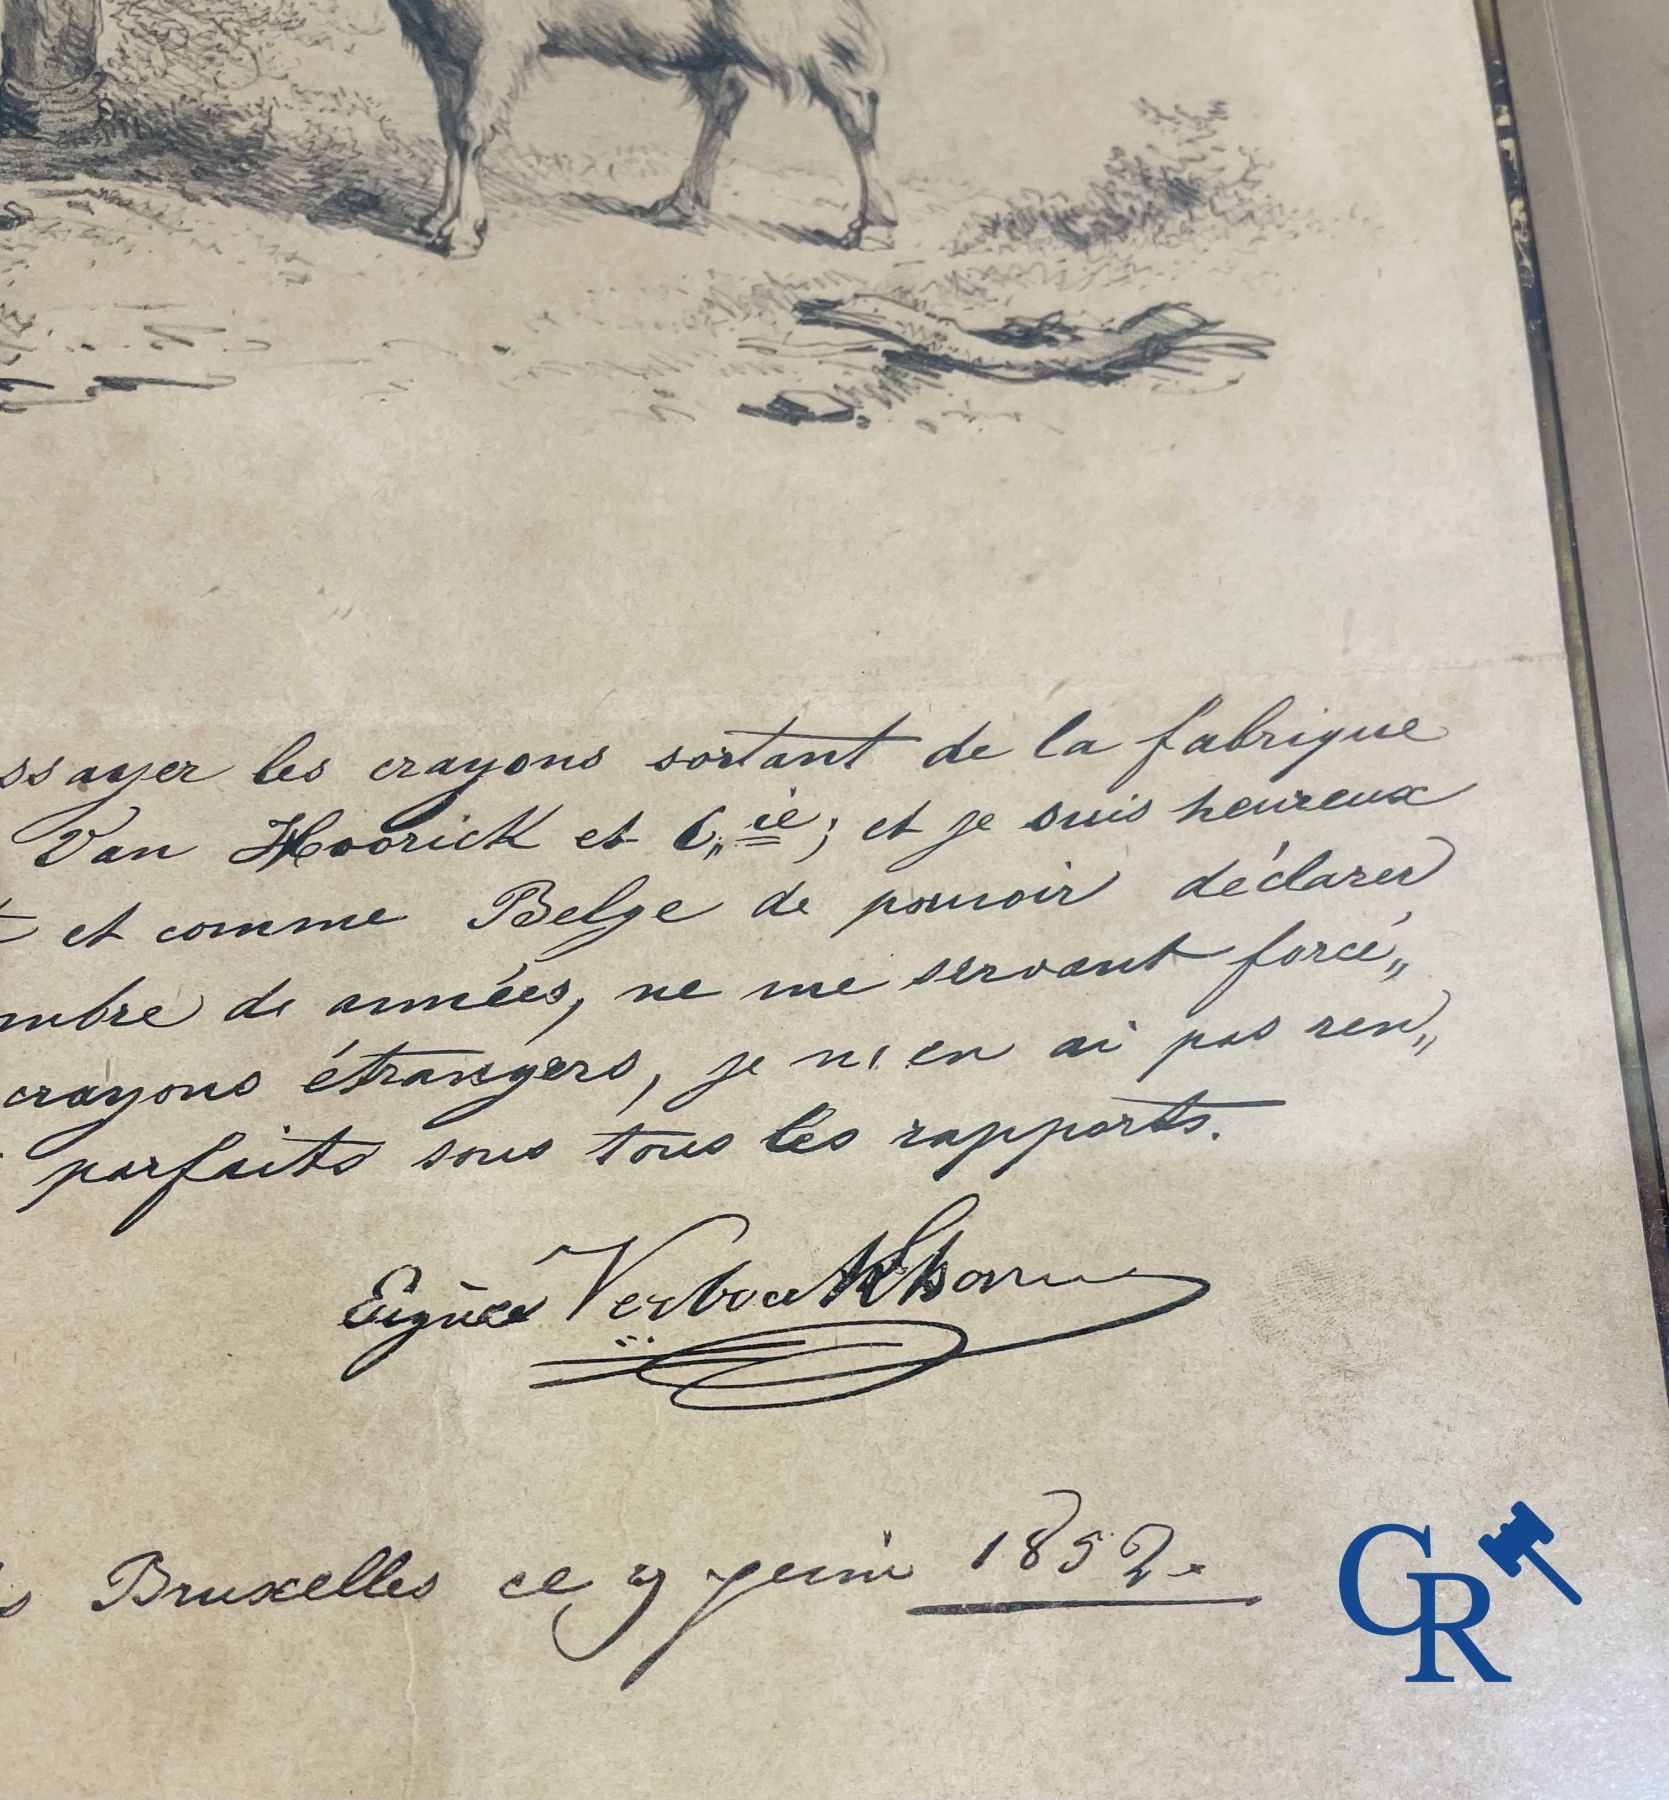 ssayer les crayons sortant de la fabrique
Van Hoorick et C,,ie; et je suis heureux
et comme Belge de pouvoir déclarer
mbre de années, ne me servant forcé,,
crayons étrangers, je n'en ai pas ren,,
parfaits sous tous les rapports.
Eugène Verboeckhoven
s Bruxelles ce 9 juin 1852.
GR